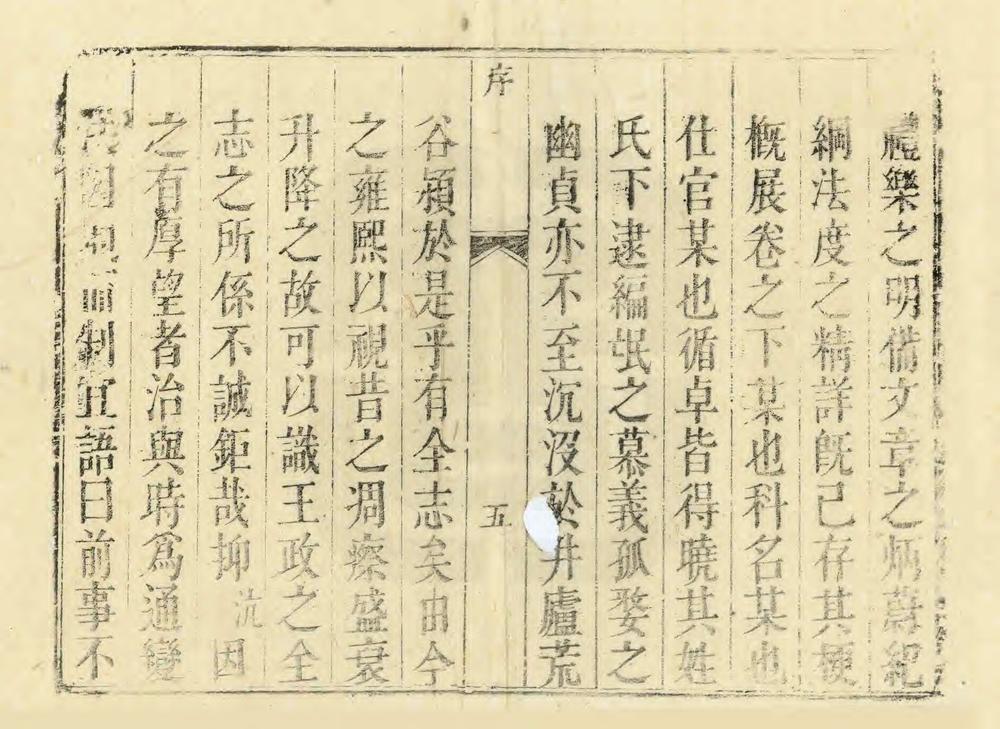 禮樂之明備文章之炳蔚紀
綱法度之精詳旣已存其梗
概展卷之下某也科名某也
仕官某也循卓皆得曉其姓
氏下逮編氓之慕義孤嫠之
幽貞亦不至沉沒於井廬荒
序
五
谷潁於是乎有全志矣由今
之雍熙以視昔之凋瘵盛衰
升降之故可以識王政之全
志之所係不誠鉅哉抑沆因
之有厚望者治與時爲通變
制宜語曰前事不